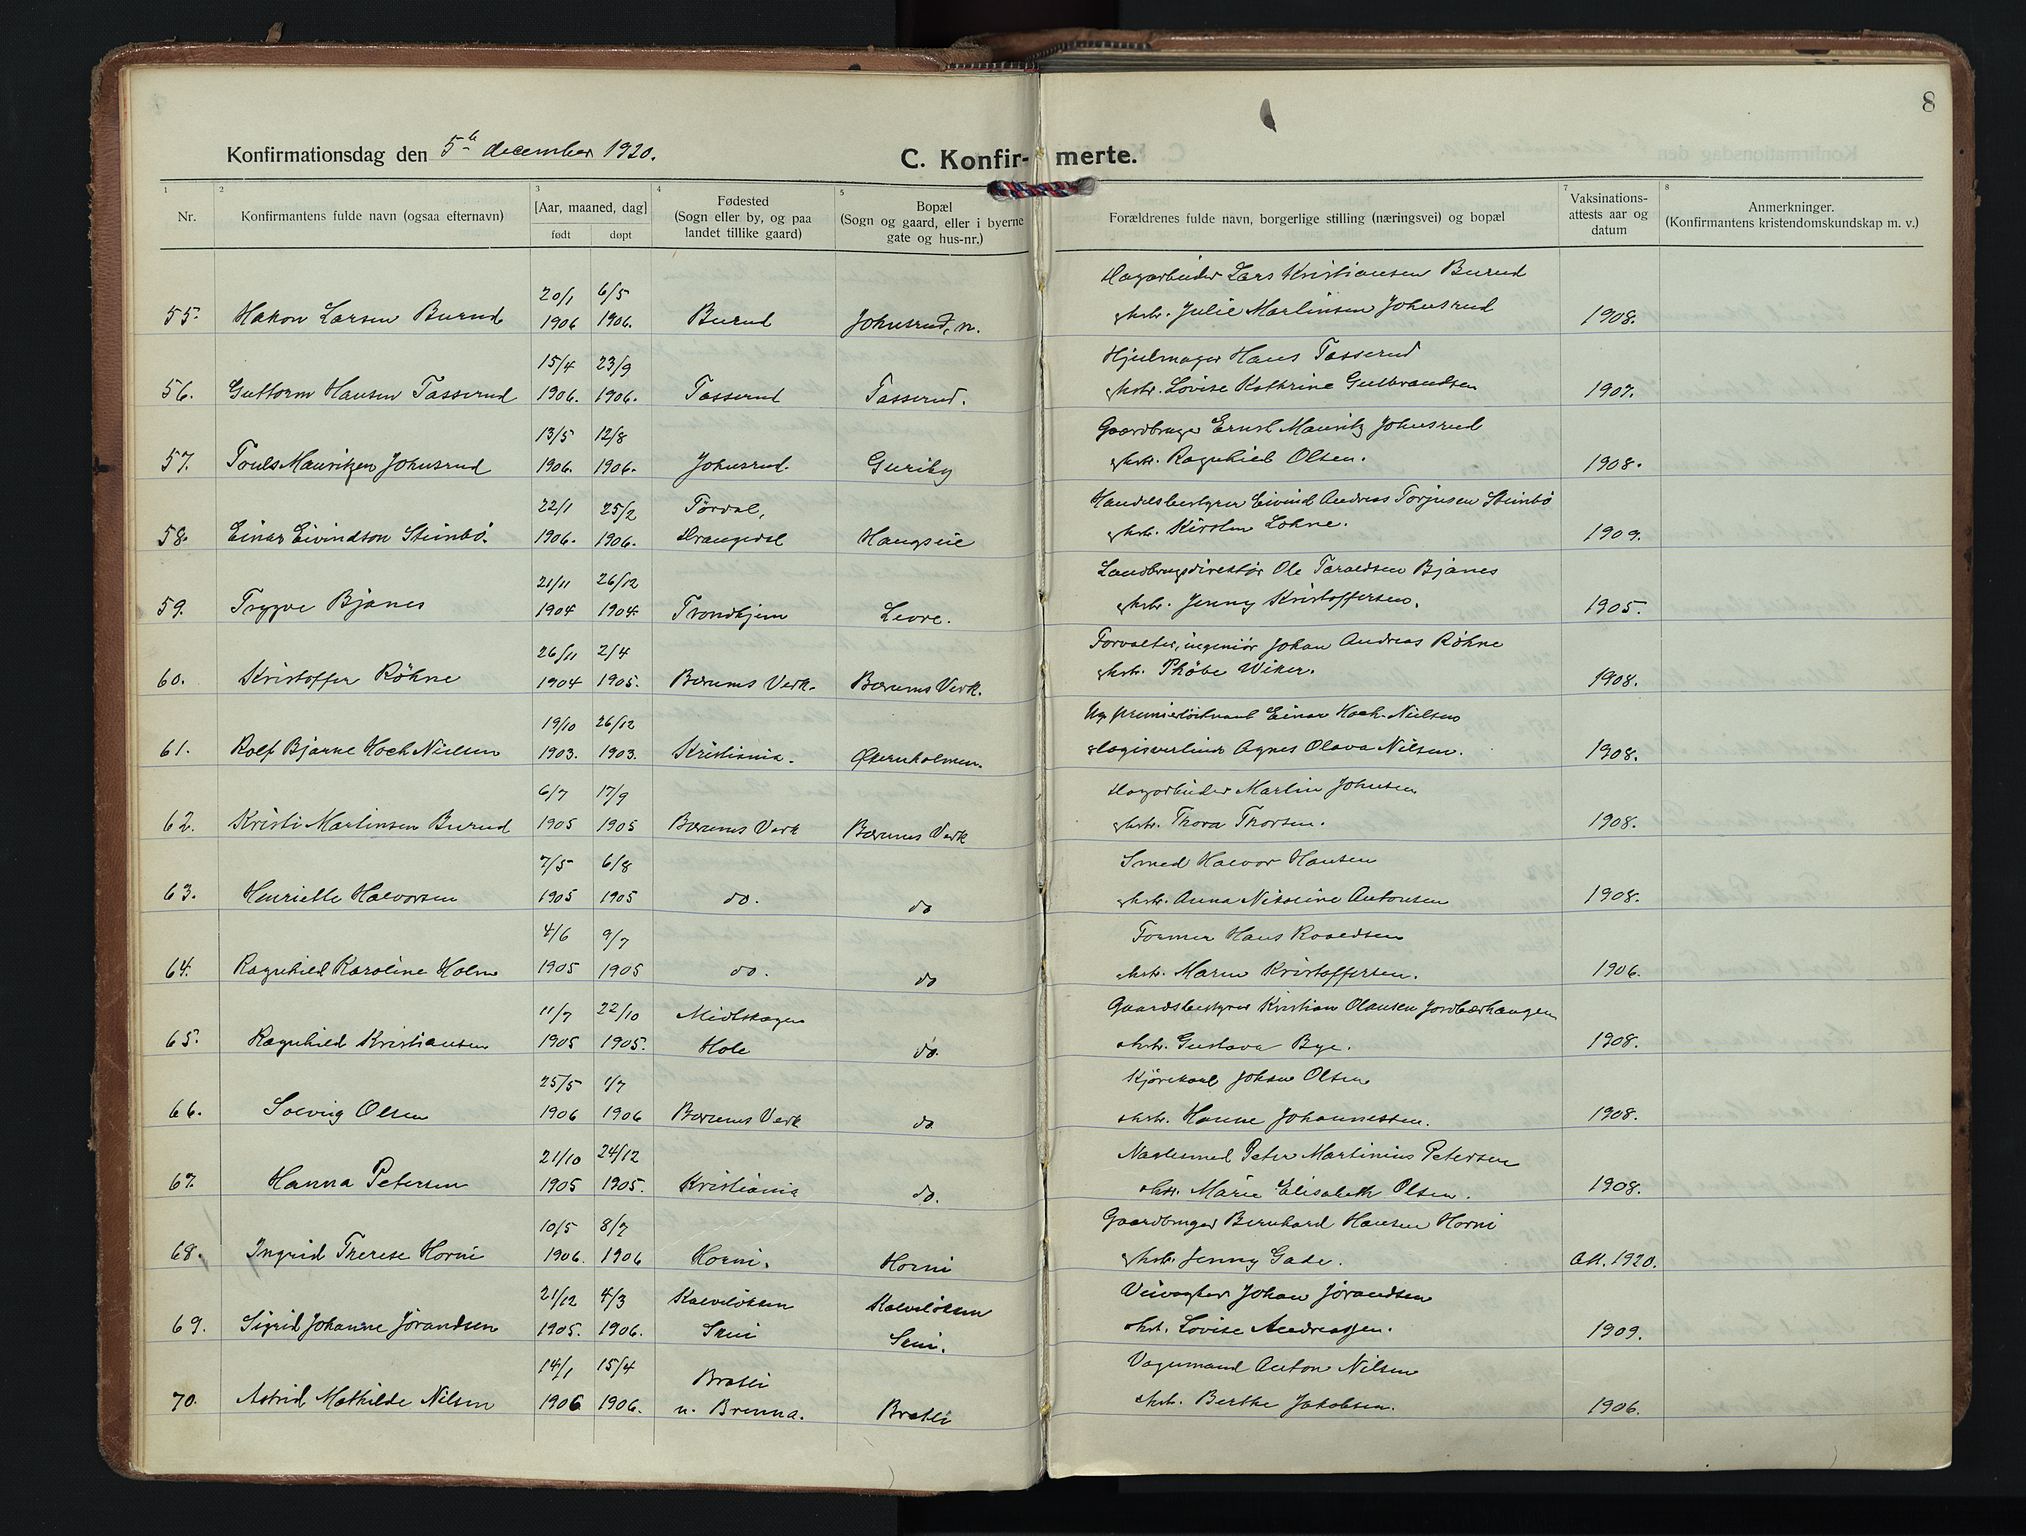 8
Konfirmationsdag den 5te december 1920.
C. Konfirmerte.
1 2 3 4 5 7 8
Nr.
Konfirmantens fulde navn (ogsaa efternavn)
[Aar, maaned, dag]
født døpt
Fødested
(Sogn eller by, og paa
landet tillike gaard)
Bopæl
(Sogn og gaard, eller i byerne
gate og hus-nr.)
Forældrenes fulde navn, borgerlige stilling (næringsvei) og bopæl
Vaksinations-
attests aar og
datum
Anmerkninger.
(Konfirmantens kristendomskundskap m. v.)
20/1 6/5 Dagarbeider Lars Kristiansen Burud
55. Hakon Larsen Burud 1906 1906. Burud Johnsrud, n. & hstr. Julie Martinsen Johnsrud 1908.
15/4 23/9 Hjulmager Hans Tasserud
56. Guttorm Hansen Tasserud 1906. 1906. Tasserud Tasserud. & hstr. Lovise Kathrine Gulbrandsen 1907.
13/5 12/8 Gaardbruger Ernst Mauritz Johnsrud
57. Mauritzen Johnsrud 1906. 1906. Johnsrud. Guriby & hstr. Ragnhild Olsen. 1908.
22/1 25/2 Tørdal, Handelsbestyrer Eivind Andreas Torjusen Steinbø
58. Einar Eivindson Steinbø. 1906. 1906. Drangedal Haugseie & hstr. Kirsten Lohne. 1909.
21/11 26/12 Landbrugsdirektør Ole Taraldsen Bjanes
59. Trygve Bjanes 1904 1904. Trondhjem & hstr. Jenny Kristoffersen. 1905.
26/11 2/4 Forvalter, ingeniør Johan Andreas Røhne
60. Kristoffer Røhne 1904 1905. Bærums Verk. Bærums Verk. & hstr. Phøbe Wiker. 1908.
19/10 26/12 premierløitnant Einar Hoch-Nielsen
61. Rolf Bjarne Hoch Nielsen 1903. 1903. Kristiania. Østernholmen. Agnes Olava Nilsen. 1908.
6/7 17/9 Dagarbeider Martin Johnsen
62. Kristi Martinsen Burud 1905 1905 Bærums Verk Bærums Verk & hstr. Thora Thorsen. 1908.
7/5 6/8 Smed Halvor Hansen
63. Henriette Halvorsen 1905 1905 do. do & hstr. Anna Nikoline Antonsen 1908.
4/6 9/7 Former Hans Roaldsen
64. Ragnhild Karoline Holm 1905 1905 do. do & hstr. Maren Kristoffersen. 1906.
11/7 22/10 Midtskogen Gaardsbestyrer Kristian Olausen Jordbærhaugen
65. Ragnhild Kristiansen 1905 1905. Hole do. & hstr. Gustava Bye. 1908.
25/5 1/7 Kjørekarl Johan Olsen
66. Solveig Olsen 1906 1906 Bærums Verk do & hstr. Hanne Johannessen. 1908.
21/10 24/12 Naglesmed Peter Martinius Petersen
67. Hanna Petersen 1905 1905. Kristiania do. & hstr. Marie Elisabeth Olsen. 1908.
10/5 8/7 Gaardbruger Bernhard Hansen Horni
68. Ingrid Therese Horni 1906. 1906 Horni. Horni & hstr. Jenny Gade. Att. 1920.
21/12 4/3 Kalveløkken Kalveløkken Veivogter Johan Jørandsen
69. Sigrid Johanne Jørandsen 1905. 1906. Seni Seni. & hstr. Lovise Andreassen. 1909.
14/1 15/4 Bratli Vognmand Anton Nilsen
70. Astrid Mathilde Nilsen 1906 1906. u. Brenna. Bratli & hstr. Berthe Jakobsen. 1906.